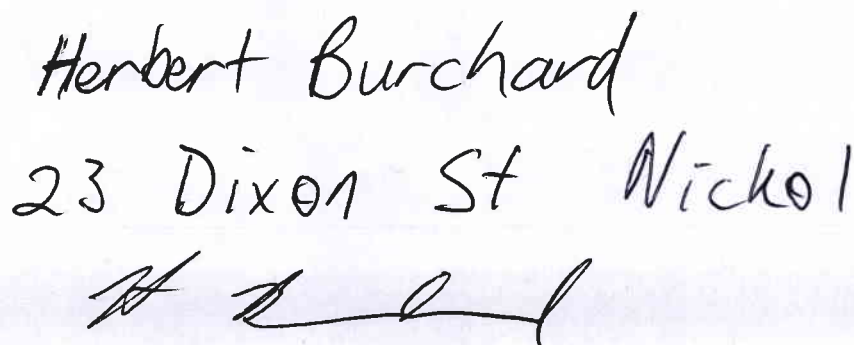 Herbert Burchard
23 Dixon St Nickol